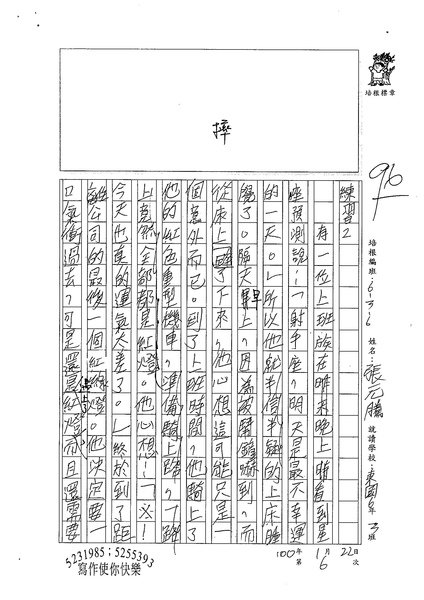 培根標章
96
培根編班：6-3-6 姓名：張元騰 就讀學校：東園國小 6年3班
100年1月22日
第6次
摔
練習2
有一位上班族在昨天晚上時看到星
座預測說：「射手座，明天是最不幸運
的一天。」所以他就半信半疑的上床睡
覺了。隔天早上，因為被鬧鐘嚇到，而
從床上摔了下來，他心想這可能只是一
個意外而已。到了上班時間，他騎上了
他的紅色重型機車，準備騎上路，一路
上竟然全部都是紅燈。他心想：「※！
今天也真的運氣太差了。」終於到了距
離公司的最後一個紅綠燈。他決定要一
口氣衝過去，可是還是紅燈，而且還需要
5231985；5255393
寫作使你快樂